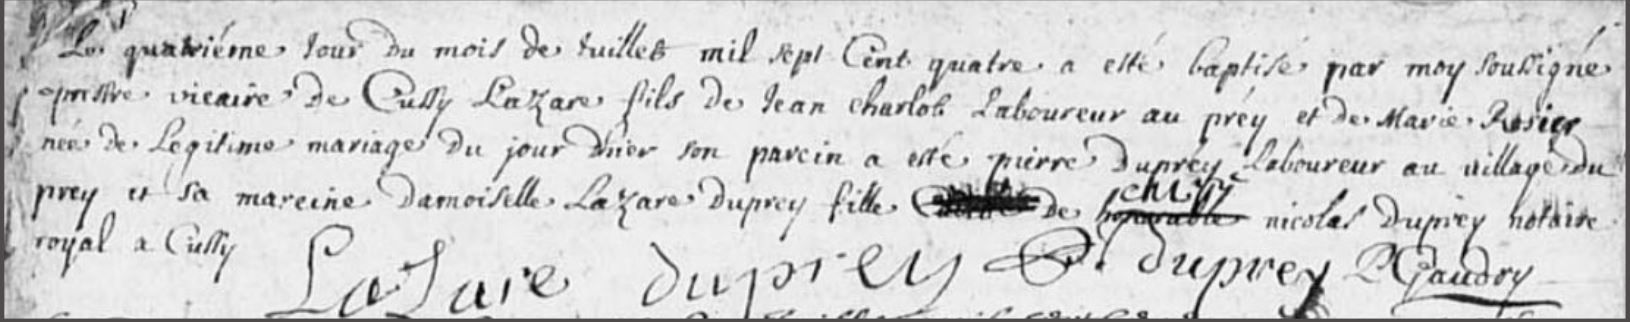 Le quatriéme Jour du mois de Juillet mil sept Cent quatre a esté baptisé par moy soussigné
prestre vicaire de Cussy Lazare fils de Jean charlot Laboureur au préy et de Marie Rosier
née de Legitime mariage du jour d'hier son parein a esté pierre dupréy Laboureur au village du
prey et sa mareine damoiselle Lazare duprey fille de honorable nicolas duprey notaire
royal a Cussy
LaZare duprey P. duprey P Gaudry